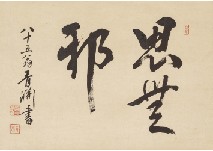 思無
邪
八十五翁書